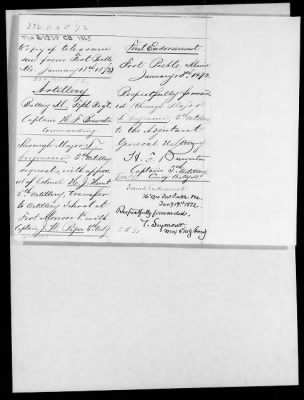 372 A.C.P. 72
Copy of telegram
sent from Fort Preble
Me. January 18th 1872
Artillery
Battery M. Fifth Regt.
Captain H. F. Brewerton
Commanding
Through Major T.
Seymour 5th Artillery
requests with approv
al of Colonel H. J. Hunt
5th Artillery, transfer
to Artillery School at
Fort Monroe Va. with
Captain J. W. Piper 5th Arty
First Endorsement
Fort Preble Maine
January 18th 1872
Respectfully forward
ed through Major
T. Seymour 5th Artillery
to the Adjutant
General U.S. Army
H. F. Brewerton
Captain 5th Artillery
Comdg Batty M
Second Endorsement
Hd Qrs Fort Preble, Me.
Jany 19th 1872.
Respectfully forwarded.
T. Seymour
Maj 5 Arty Comdg